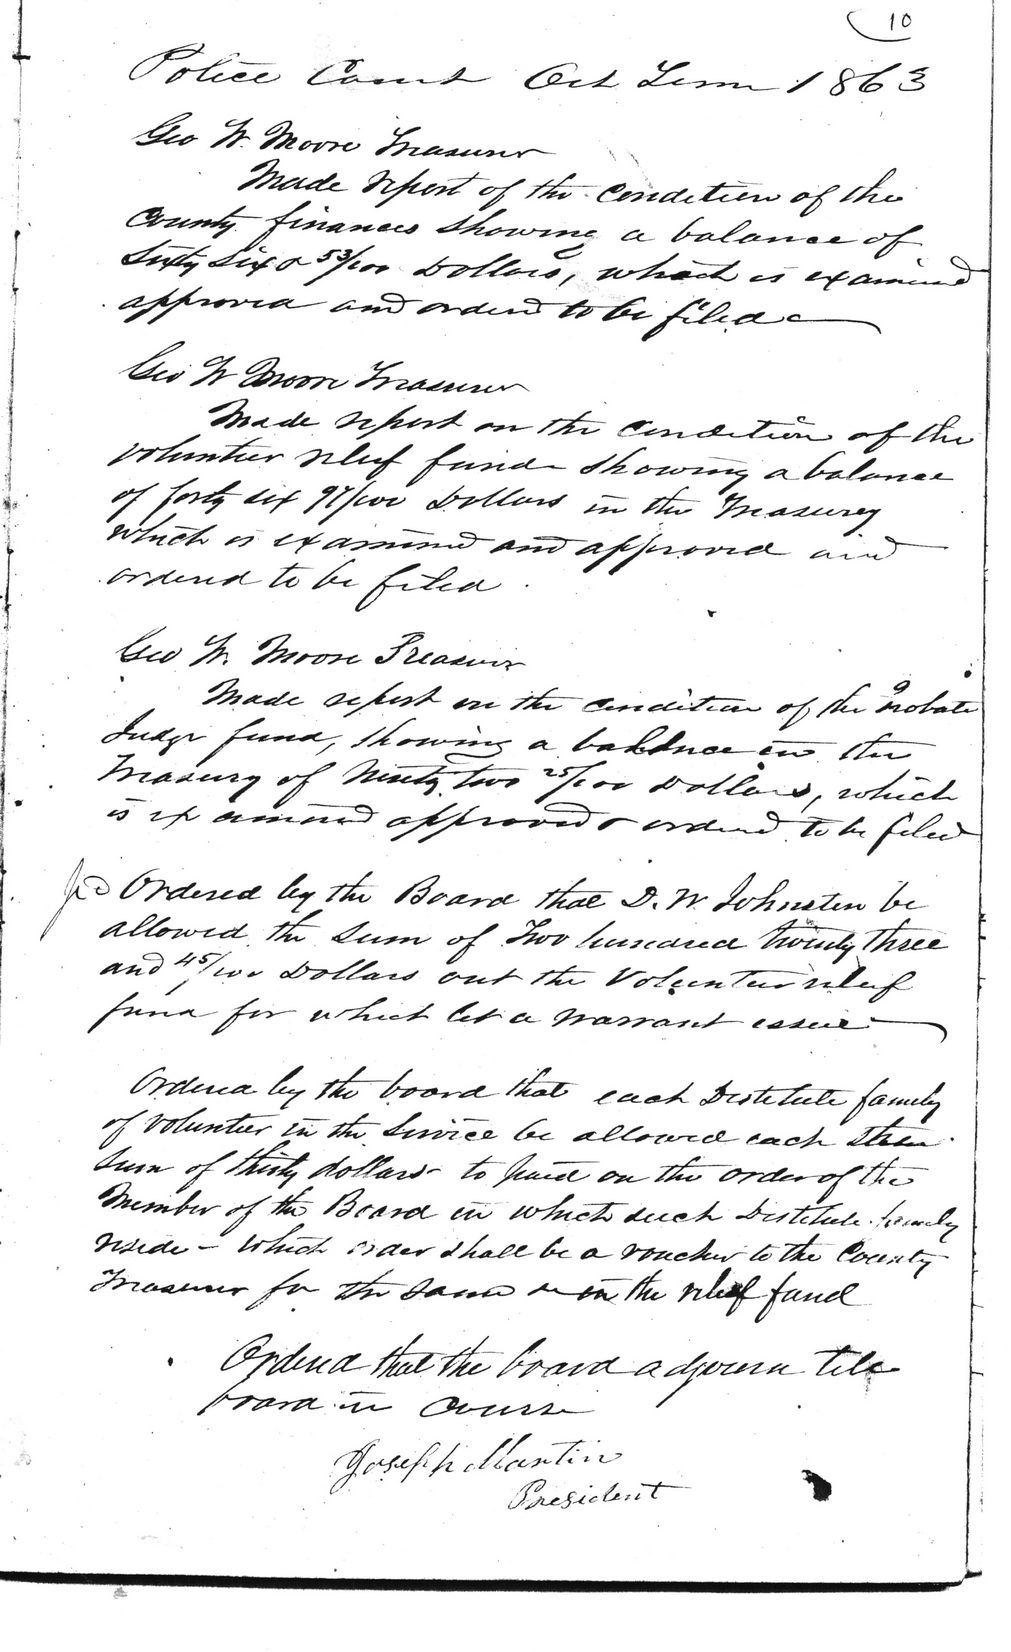 10
Police Court Oct Term 1863
Geo W. Moore Treasurer
Made report of the condition of the
County finances showing a balance of
Sixty six & 53/100 Dollars, which is examined
approved and orderd to be filed
Geo W Moore Treasurer
Made report on the condition of the
volunteer relief fund showing a balance
of forty six 97/100 Dollars in the Treasurey
which is examined and approved and
ordered to be filed.
Geo W. Moore Treasurer
Made report on the condition of the Probate
Judge fund, showing a ballance in the
Treasury of Ninety two 25/100 Dollars, which
is examined approved & orderd to be filed
Ordered by the Board that D. W. Johnston be
allowed the sum of Two hundred twenty three
and 45/100 Dollars out the Volunteer relief
fund for which let a warrant issue
Ordered by the board that each Distitute family
of volunteer in the Service be allowed each
sum of thirty dollars to paid on the order of the
Member of the Board in which such Distitute family
reside - which order shall be a voucher to the County
Treasurer for the same in the relief fund
Ordered that the board adjourn till
board in course
Joseph Martin
President